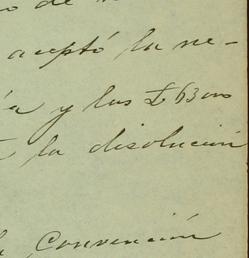 o de
aceptó la ne-
a y las £ 63 000
la disolución
la Convención